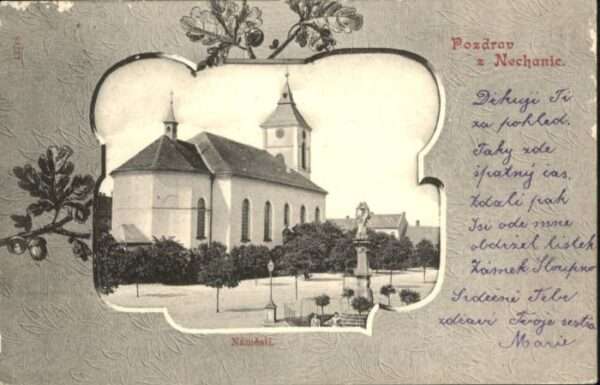 Pozdrav
z Nechanic.
Děkuji Ti
za pohled.
Taky zde
špatný čas,
Zdali pak
Jsi ode mne
obdržel lístek
Zámek Hloupno
Srdečně Tebe
zdraví Tvoje sestra
Marie
Náměstí.